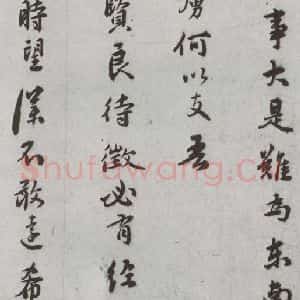 事大是難為东南
虜何以支吾
賢良待徵必有经
時望深不敢违希
Shufawang.Cn